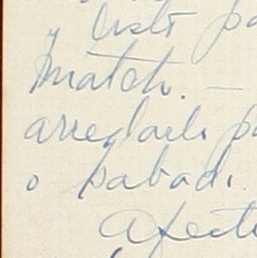 y listo pa
match. —
arreglarlo pa
o sabado.
Afect